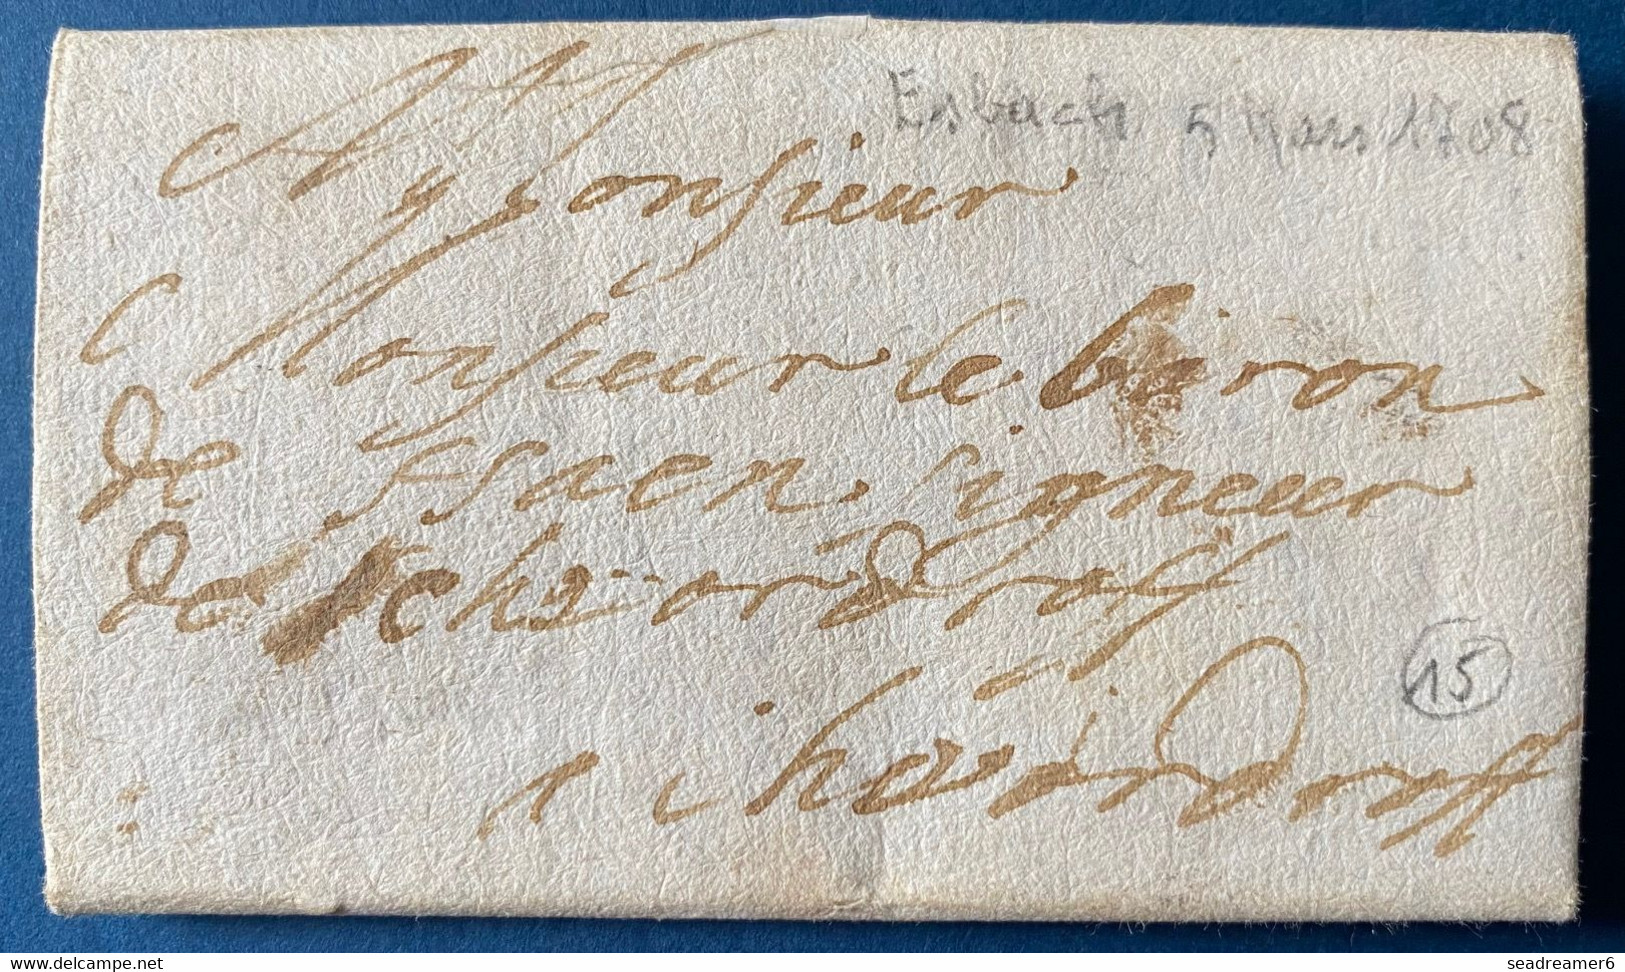 Esbach 5 Mars 1708
A Monsieur
Monsieur le baron
de Issaen, signeur
de
15
a
delcampe.net
seadreamer6